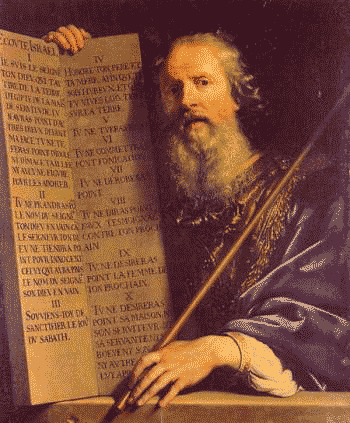 ECOVTE ISRAEL
I
JE SVIS LE SEIGNE
TON DIEV, QVI T'AY
TIRE DE LA TERRE
D'EGIPTE DE LA MAI
DE SERVITVDE. TV
N'AVRAS POINT D'AV
TRES DIEVX DEVANT
MA FACE. TV NE TE
FERAS POINT D'IDOLE
NI D'IMAGE TAILLEE
NY AVCVNE FIGVRE
POVR LES ADORER.
II
TV NE PRENDRAS PO
LE NOM DV SEIGNE
TON DIEV EN VAIN CA
LE SEIGNEVR TON DI
EV NE TIENDRA PO
INT POVR INNOCENT
CELVY QVI AVRA PRIS
LE NOM DV SEIGNE
SON DIEV EN VAIN.
III
SOVVIENS-TOY DE
SANCTIFIER LE IOV
DV SABATH.
IV
HONORE TON PERE ET
TA MERE, AFIN QVE
TV VIVES LONG TEM
SVR LA TERRE.
V
TV NE TVERAS
VI
TV NE COMMETTRAS
POINT FORNICATION
VII
TV NE DEROBERAS
POINT.
VIII
TV NE DIRAS POINT
FAVX TESMOIGNAG
CONTRE TON PROCH
AIN
IX
TV NE DESIRERAS
POINT LA FEMME DE
TON PROCHAIN.
X
TV NE DESIRERAS
POINT SA MAISON, N
SON SERVITEVR, N
SA SERVANTE, NI
BOEVF, NI SON
NY AVTRE
LVY APP